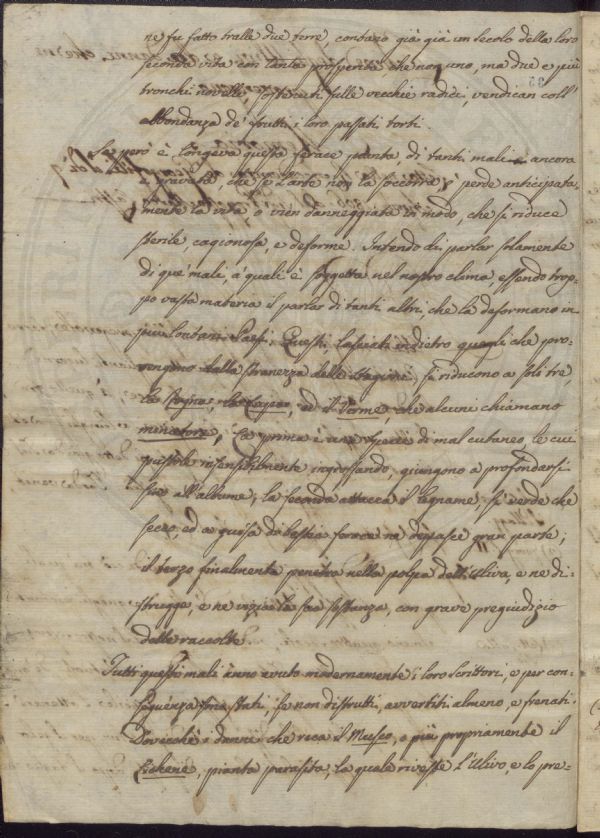 ne fu fatto tralle due terre contano già già un secolo della loro
seconda vita con tanta prosperità che non uno, ma due e più
tronchi novelli, sostenuti sulle vecchie radici, vendican coll'
abbondanza de' frutti i loro passati torti.
Se però è longeva questa ferace pianta, di tanti mali è ancora
gravata, che se l'arte non la soccorre perde anticipata-
mente la vita o vien danneggiata in modo, che si riduce
sterile cagionosa, e deforme. Intendo di parlar solamente
di que' mali, a' quali è soggetta nel nostro clima, essendo trop-
po vasta materia il parlar di tanti altri, che la deformano in
più lontani Paesi. Questi, lasciati indietro quegli che pro-
vengono dalla stranezza delle stagioni, si riducono a soli tre,
la Rogna, la Lupa, ed il Verme, che alcuni chiamano
minatore. La prima è una specie di mal cutaneo, le cui
pustole insensibilmente ingrossando, giungono a profondarsi
sino all'alburno; la seconda attacca il legname, sì verde che
secco, ed a guisa di bestia ferace ne depasce gran parte;
il terzo finalmente penetra nella polpa dell'Uliva, e ne di-
strugge, e ne vizia la sua sostanza, con grave pregiudizio
delle raccolte.
Tutti questi mali ànno avuto modernamente i loro Scrittori, e per con-
seguenza sono stati, se non distrutti, avvertiti almeno, e frenati.
Dovecchè i danni che reca il Musco, o più propriamente il
Lichene, pianta parasita, la quale riveste l'Ulivo, e lo pre-